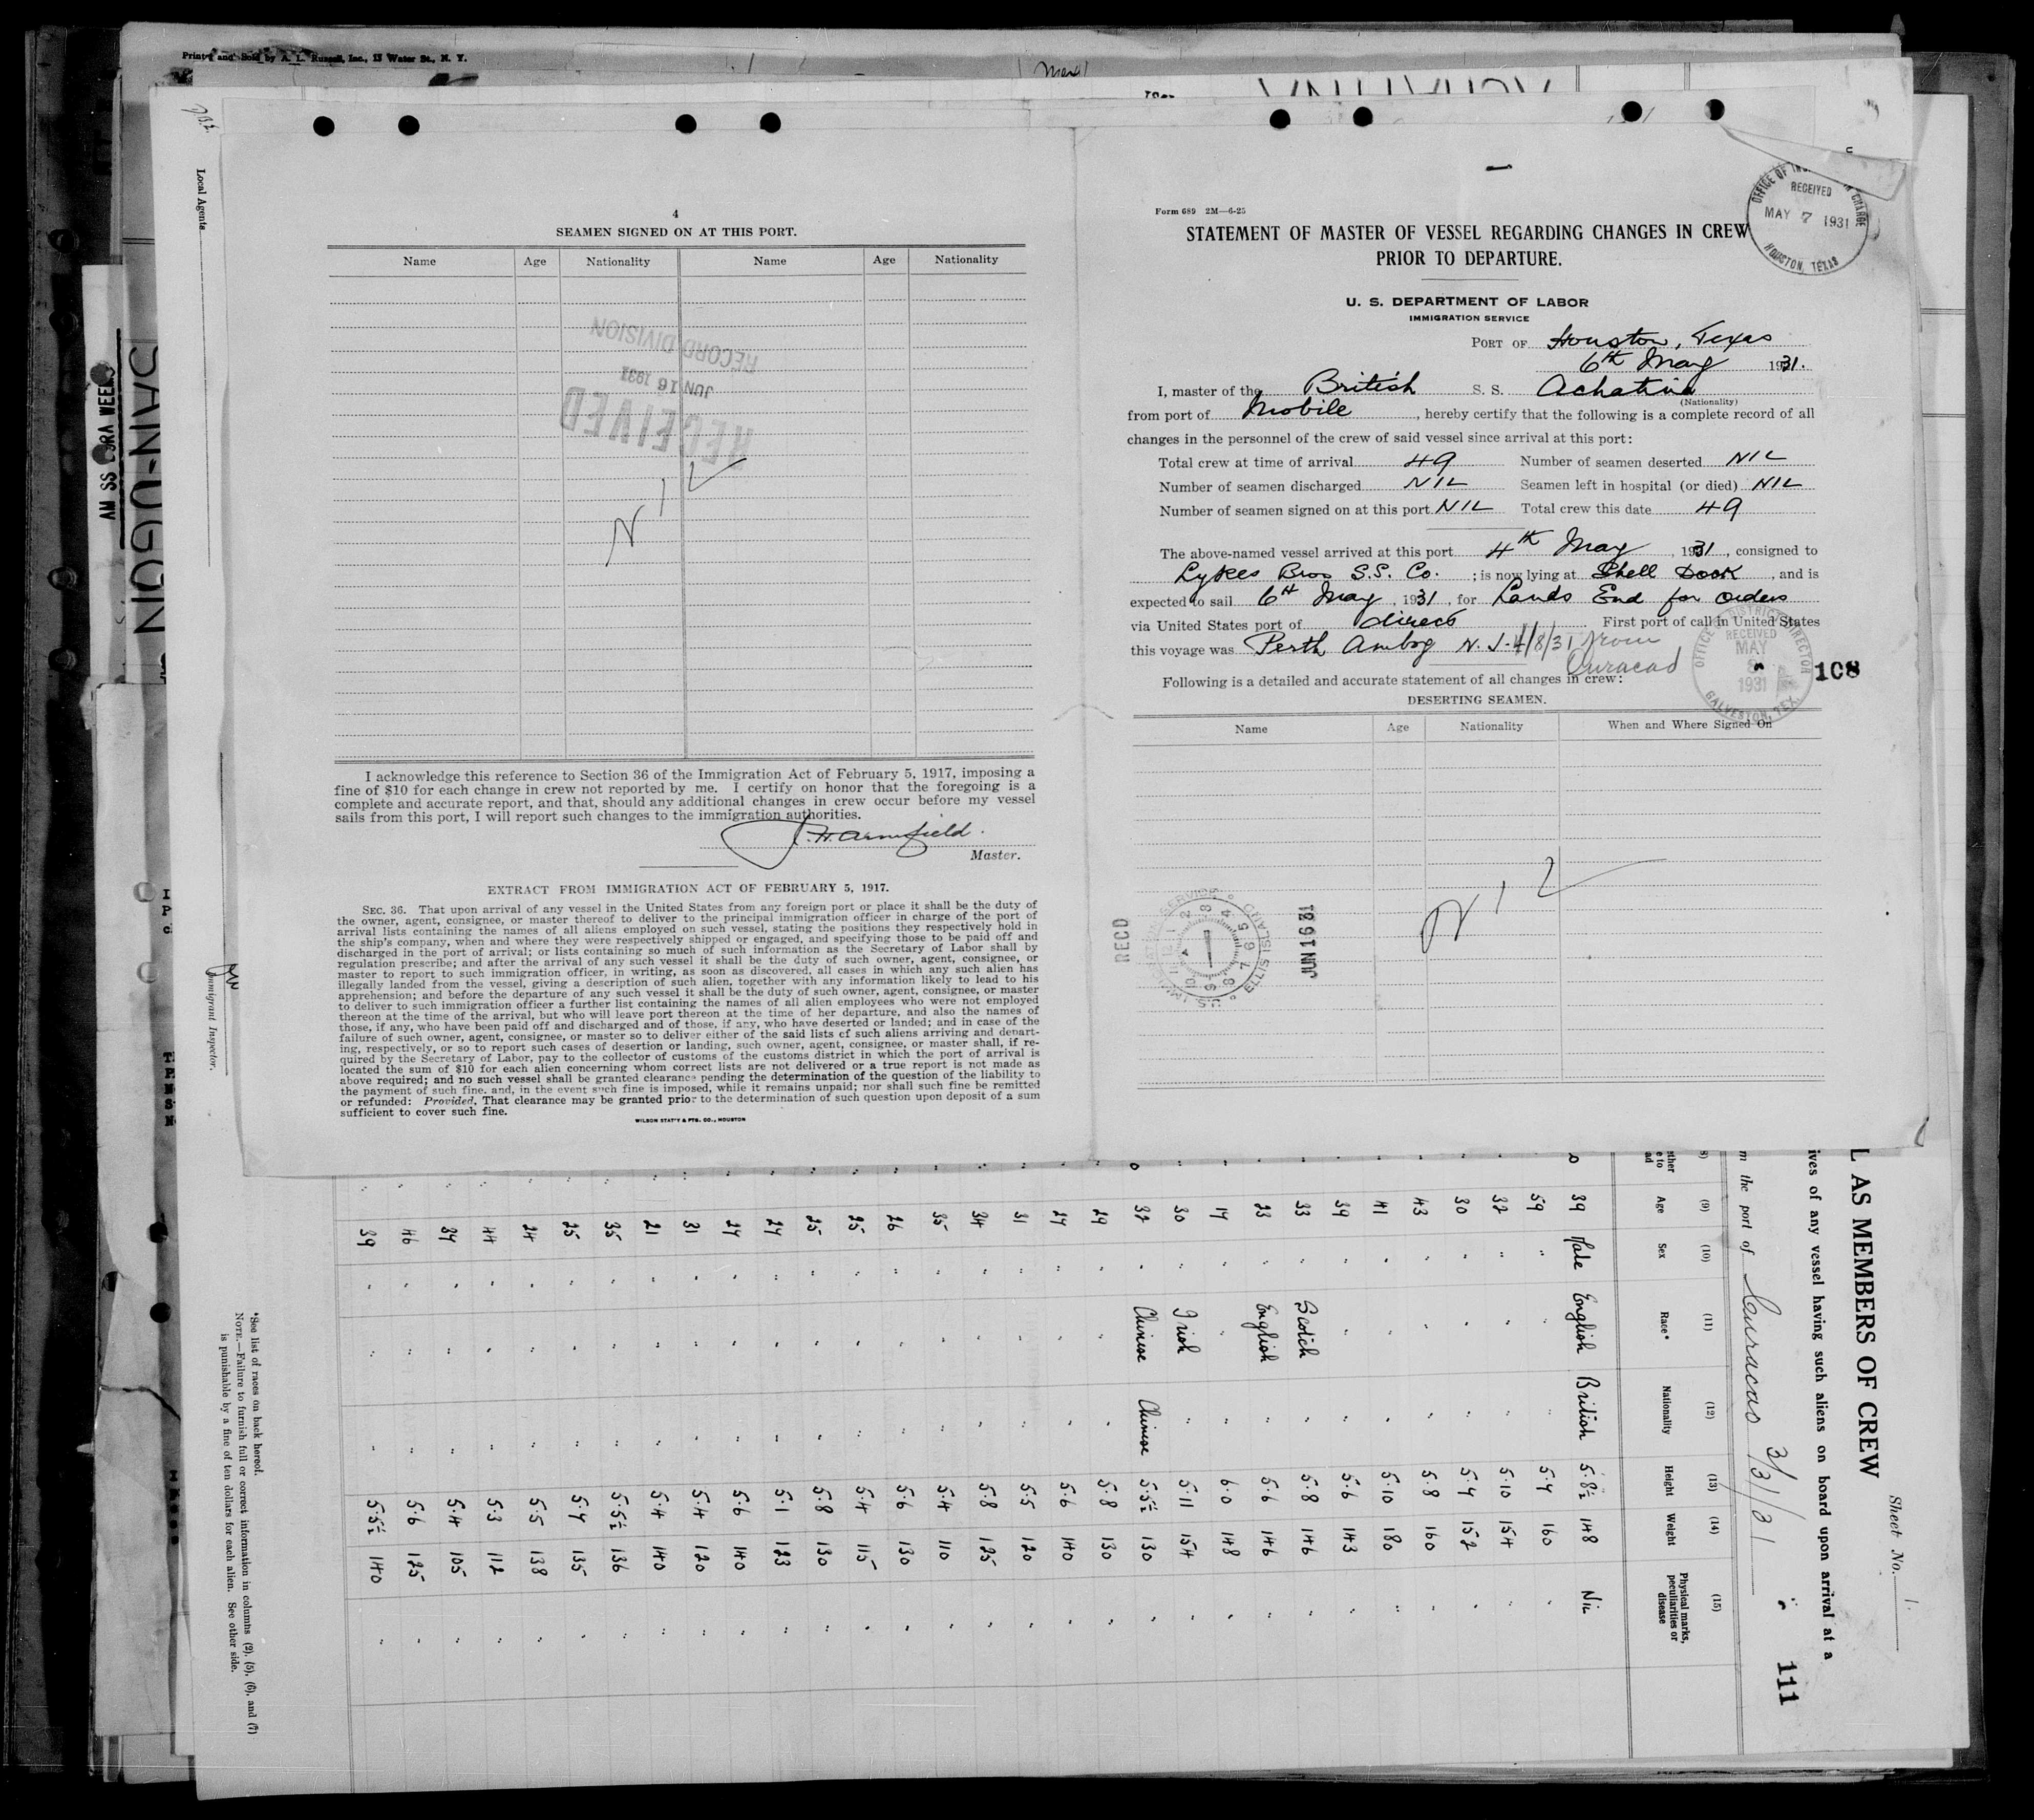 Printed and Sold by A. L. Russell, Inc., 13 Water St., N. Y.
Local Agents
4
SEAMEN SIGNED ON AT THIS PORT.
Name Age Nationality Name Age Nationality
RECORD DIVISION
JUN 16 1931
RECEIVED
NIL
I acknowledge this reference to Section 36 of the Immigration Act of February 5, 1917, imposing a
fine of $10 for each change in crew not reported by me. I certify on honor that the foregoing is a
complete and accurate report, and that, should any additional changes in crew occur before my vessel
sails from this port, I will report such changes to the immigration authorities.
Armfield.
Master.
EXTRACT FROM IMMIGRATION ACT OF FEBRUARY 5, 1917.
SEC. 36. That upon arrival of any vessel in the United States from any foreign port or place it shall be the duty of
the owner, agent, consignee, or master thereof to deliver to the principal immigration officer in charge of the port of
arrival lists containing the names of all aliens employed on such vessel, stating the positions they respectively hold in
the ship's company, when and where they were respectively shipped or engaged, and specifying those to be paid off and
discharged in the port of arrival; or lists containing so much of such information as the Secretary of Labor shall by
regulation prescribe; and after the arrival of any such vessel it shall be the duty of such owner, agent, consignee, or
master to report to such immigration officer, in writing, as soon as discovered, all cases in which any such alien has
illegally landed from the vessel, giving a description of such alien, together with any information likely to lead to his
apprehension; and before the departure of any such vessel it shall be the duty of such owner, agent, consignee, or master
to deliver to such immigration officer a further list containing the names of all alien employees who were not employed
thereon at the time of the arrival, but who will leave port thereon at the time of her departure, and also the names of
those, if any, who have been paid off and discharged and of those, if any, who have deserted or landed; and in case of the
failure of such owner, agent, consignee, or master so to deliver either of the said lists of such aliens arriving and depart-
ing, respectively, or so to report such cases of desertion or landing, such owner, agent, consignee, or master shall, if re-
quired by the Secretary of Labor, pay to the collector of customs of the customs district in which the port of arrival is
located the sum of $10 for each alien concerning whom correct lists are not delivered or a true report is not made as
above required; and no such vessel shall be granted clearance pending the determination of the question of the liability to
the payment of such fine, and, in the event such fine is imposed, while it remains unpaid; nor shall such fine be remitted
or refunded: Provided, That clearance may be granted prior to the determination of such question upon deposit of a sum
sufficient to cover such fine.
WILSON STAT'Y & PTG. CO., HOUSTON
Immigrant Inspector.
Form 689 2M—6-25
STATEMENT OF MASTER OF VESSEL REGARDING CHANGES IN CREW
PRIOR TO DEPARTURE.
RECEIVED
MAY 7 1931
HOUSTON, TEXAS
U. S. DEPARTMENT OF LABOR
IMMIGRATION SERVICE
PORT OF Houston, Texas
6th May 1931.
I, master of the British S. S. Achatina
(Nationality)
from port of Mobile, hereby certify that the following is a complete record of all
changes in the personnel of the crew of said vessel since arrival at this port:
Total crew at time of arrival 49 Number of seamen deserted NIL
Number of seamen discharged NIL Seamen left in hospital (or died) NIL
Number of seamen signed on at this port NIL Total crew this date 49
The above-named vessel arrived at this port 4th May, 1931, consigned to
Lykes Bros S.S. Co.; is now lying at Shell Dock, and is
expected to sail 6th May, 1931, for Lands End for orders
via United States port of direct. First port of call in United States
this voyage was Perth Amboy N. J. 4/8/31 from
Curacao
OFFICE DISTRICT DIRECTOR
RECEIVED
MAY
8
1931
GALVESTON, TEX.
108
Following is a detailed and accurate statement of all changes in crew:
DESERTING SEAMEN.
Name Age Nationality When and Where Signed On
NIL
RECD
U.S. IMMIGRATION SERVICE ELLIS ISLAND
JUN 16 31
AM SS CORA WEEMS
L AS MEMBERS OF CREW
Sheet No. 1.
ives of any vessel having such aliens on board upon arrival at a
m the port of Curacao 3/31/31
111
(9) (10) (11) (12) (13) (14) (15)
Age Sex Race* Nationality Height Weight Physical marks, peculiarities or disease
39 Male English British 5.8½ 148 Nil
59 " " " 5.7 160 "
32 " " " 5.10 154 "
30 " " " 5.7 152 "
43 " " " 5.8 160 "
41 " " " 5.10 180 "
39 " " " 5.6 143 "
33 " Scotch " 5.8 146 "
23 " English " 5.6 146 "
" " " 6.0 148 "
30 " Irish " 5.11 154 "
32 " Chinese Chinese 5.5½ 130 "
29 " " " 5.8 130 "
" " " 5.6 140 "
31 " " " 5.5 120 "
34 " " " 5.8 125 "
35 " " " 5.4 110 "
26 " " " 5.6 130 "
25 " " " 5.4 115 "
25 " " " 5.8 130 "
" " " 5.1 123 "
" " " 5.6 140 "
31 " " " 5.4 120 "
21 " " " 5.4 140 "
35 " " " 5.5½ 136 "
25 " " " 5.7 135 "
24 " " " 5.5 138 "
44 " " " 5.3 112 "
" " " 5.4 105 "
46 " " " 5.6 125 "
39 " " " 5.5½ 140 "
*See list of races on back hereof.
NOTE.—Failure to furnish full or correct information in columns (2), (5), (6), and (7)
is punishable by a fine of ten dollars for each alien. See other side.